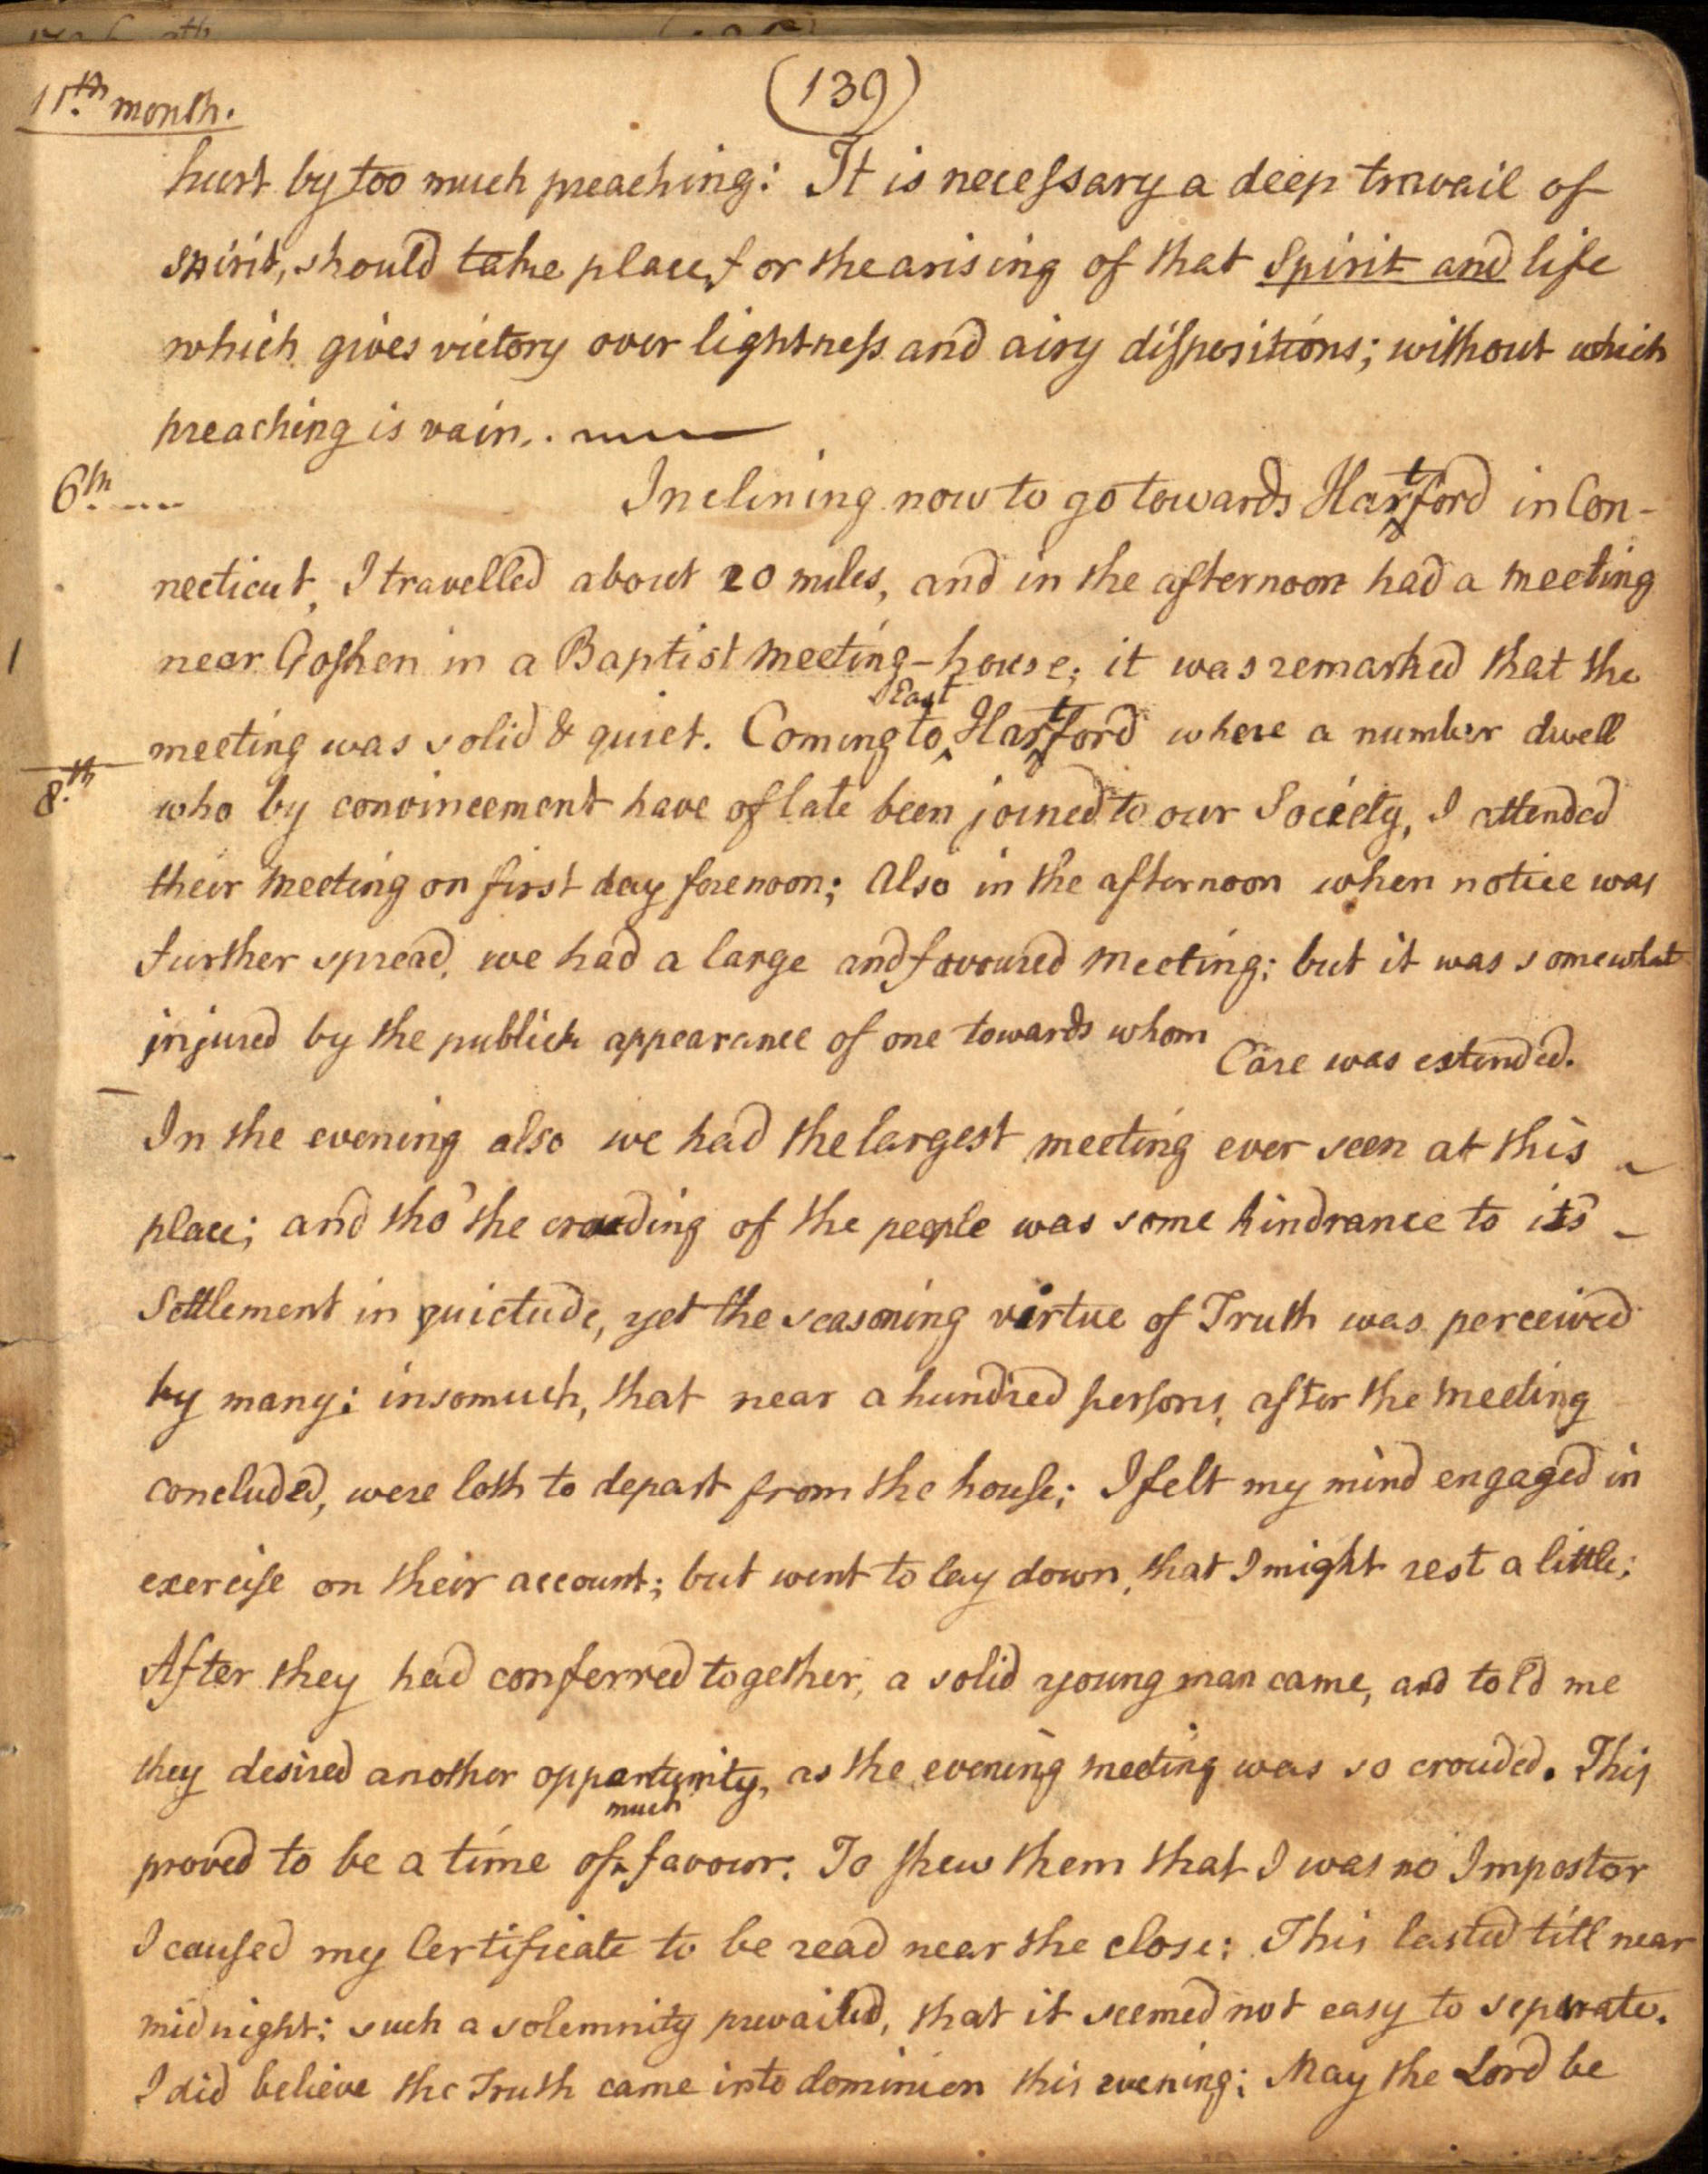 (139)
11.th month.
hurt by too much preaching: It is necessary a deep travail of
spirit, should take place, for the arising of that Spirit and life
which gives victory over lightness and airy dispositions; without which
preaching is vain.
6.th Inclining now to go towards Hartford in Con-
necticut, I travelled about 20 miles, and in the afternoon had a meeting
near Goshen in a Baptist meeting-house; it was remarked that the
East
meeting was solid & quiet. Coming to ^ Hartford where a number dwell
8.th who by convincement have of late been joined to our Society, I attended
their meeting on first day forenoon; Also in the afternoon when notice was
further spread, we had a large and favoured meeting; but it was somewhat
injured by the publick appearance of one towards whom Care was extended.
In the evening also we had the largest meeting ever seen at this
place; and tho' the crouding of the people was some hindrance to its
Settlement in quietude, yet the seasoning virtue of Truth was perceived
by many: insomuch, that near a hundred persons, after the meeting
concluded, were loth to depart from the house; I felt my mind engaged in
exercise on their account; but went to lay down, that I might rest a little;
After they had conferred together, a solid young man came, and told me
they desired another opportunity, as the evening meeting was so crouded. This
much
proved to be a time of ^ favour. To shew them that I was no Impostor
I caused my Certificate to be read near the close: This lasted till near
midnight: such a solemnity prevailed, that it seemed not easy to seperate.
I did believe the Truth came into dominion this evening; May the Lord be